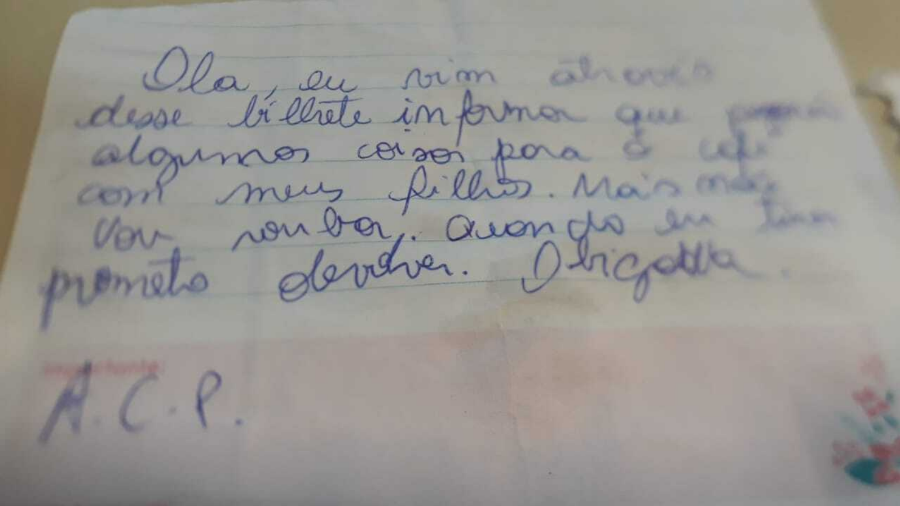 Ola, eu vim atraves
desse bilhete informar que peguei
algumas coisas para o café
com meus filhos. Mais não
vou rouba. Quando eu tiver
prometo devolver. Obigadda.
importante:
A.C.P.